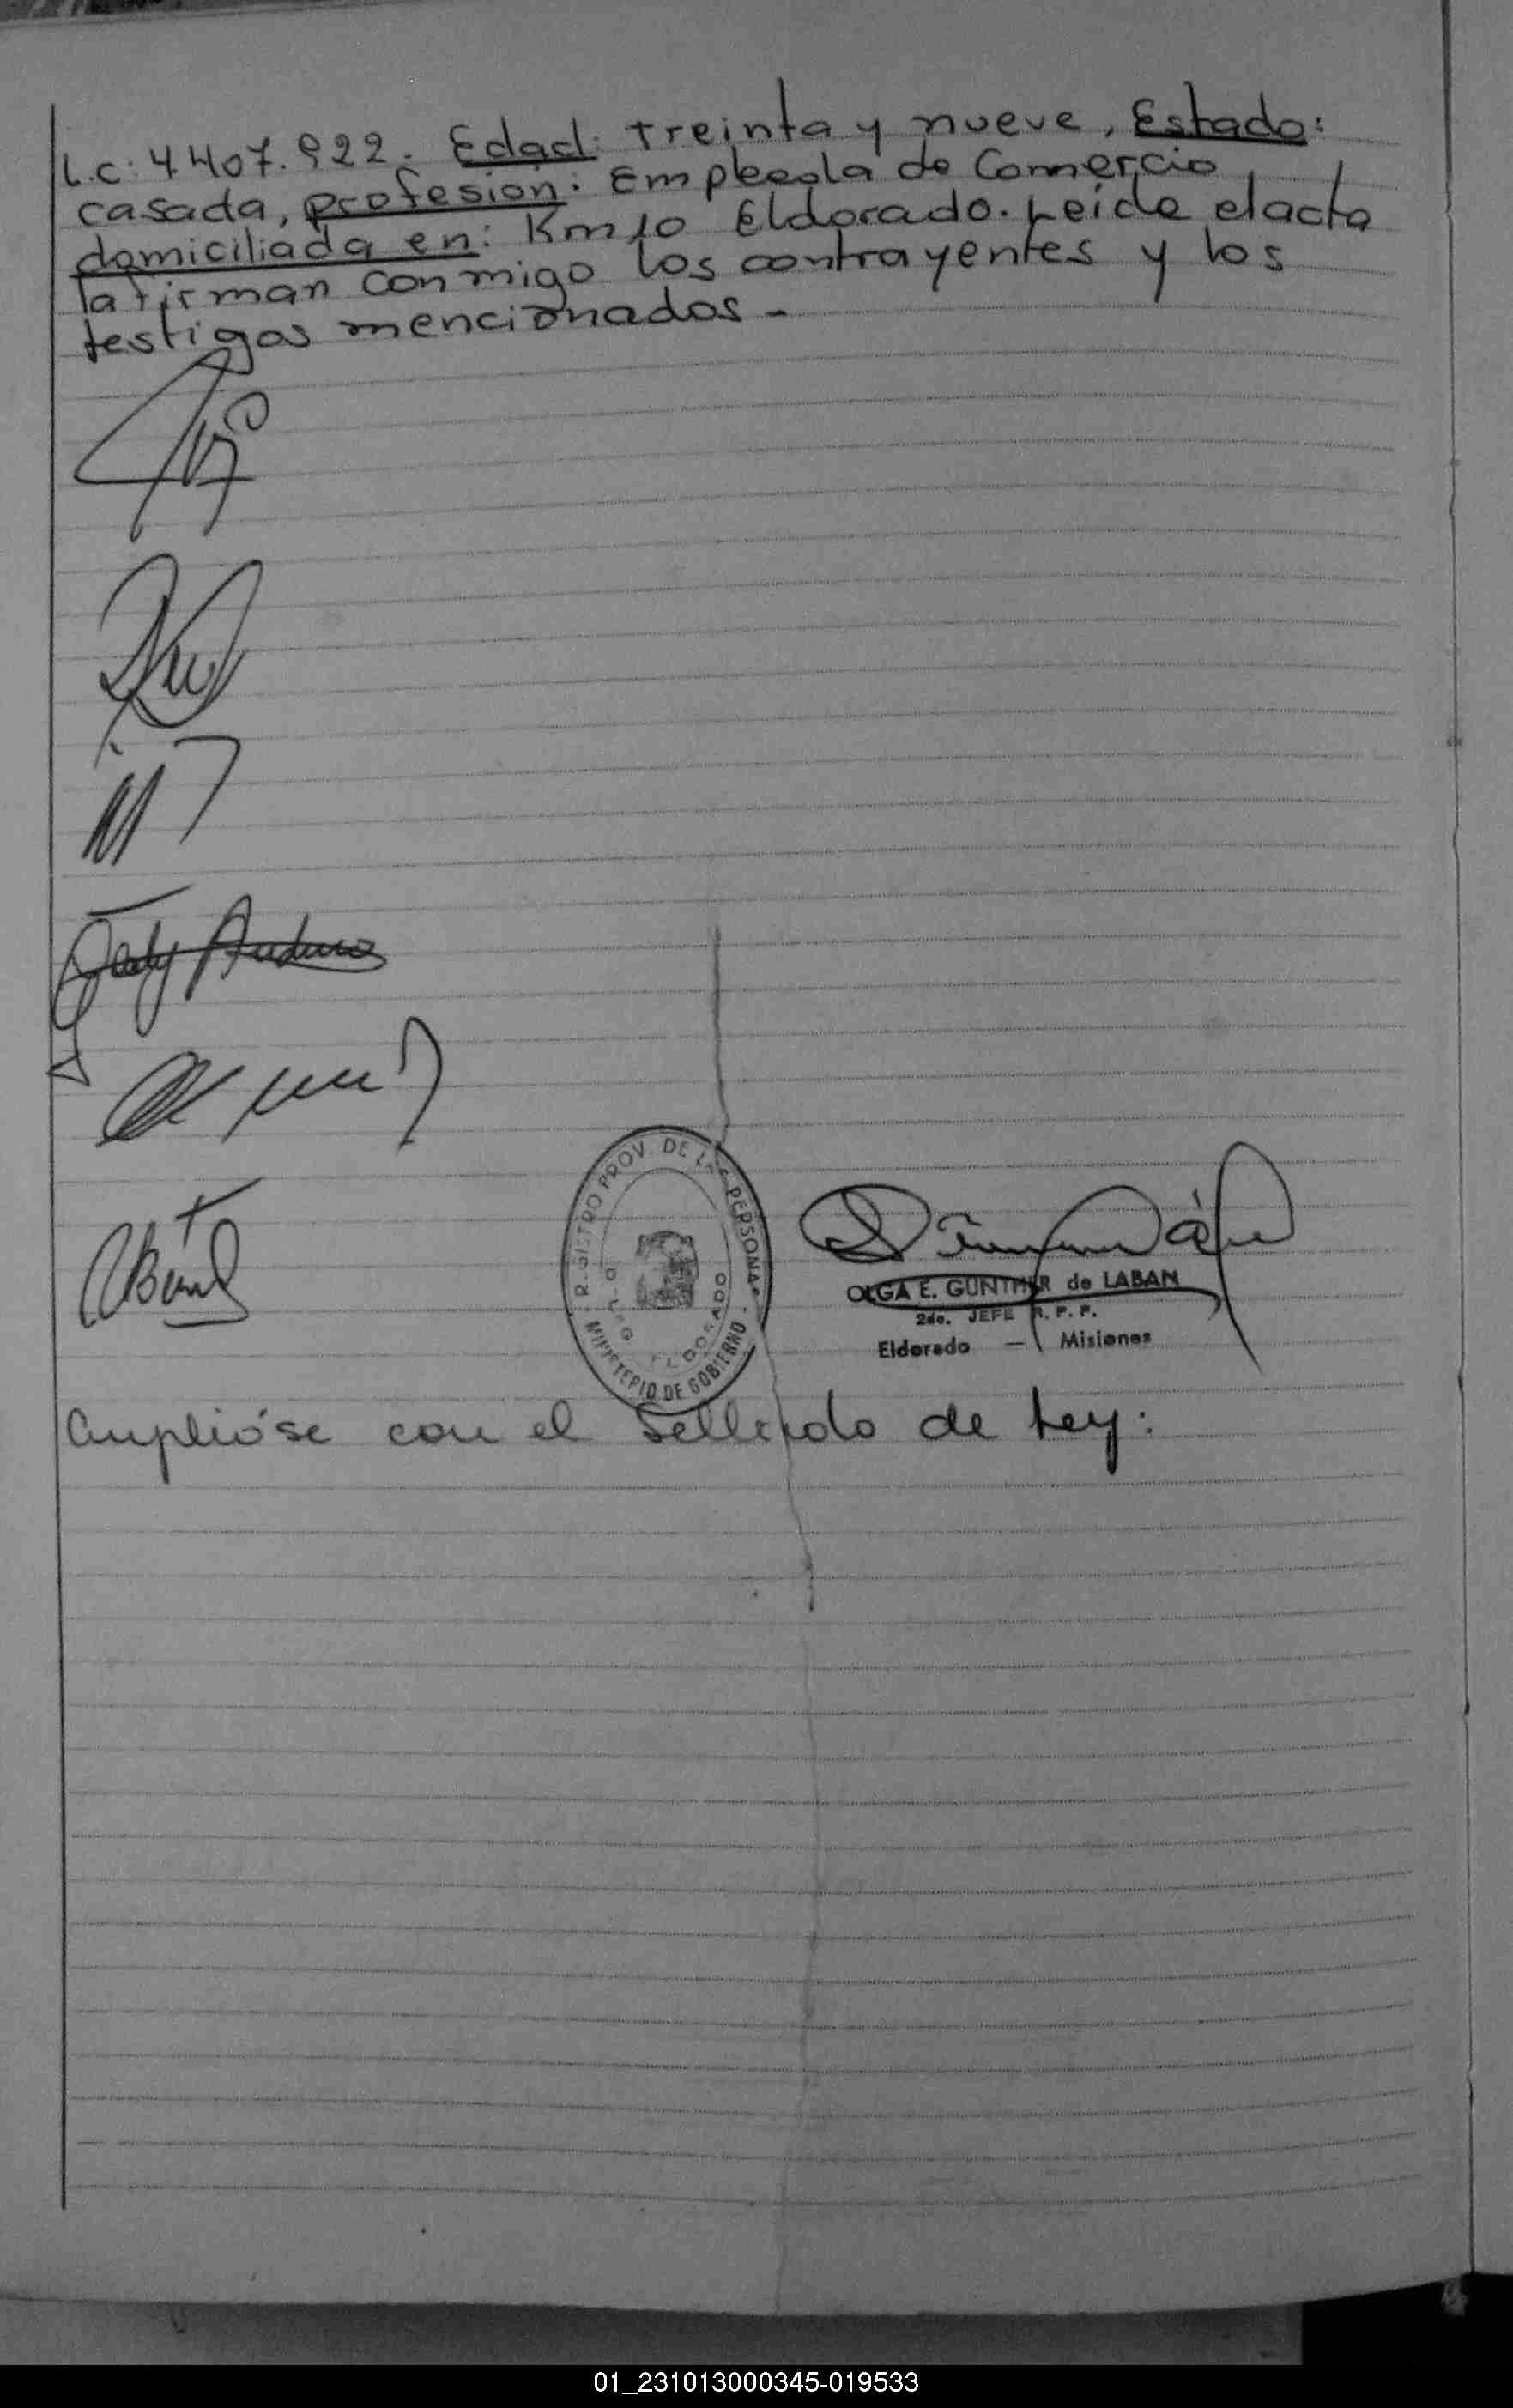 L.C: 4.407.922. Edad: treinta y nueve, Estado:
casada, profesión: Empleada de Comercio,
domiciliada en: Km 10 Eldorado. Leída el acta
la firman conmigo los contrayentes y los
testigos mencionados -
REGISTRO PROV. DE LAS PERSONAS
ELDORADO
MINISTERIO DE GOBIERNO
OLGA E. GUNTHER de LABAN
2do. JEFE R. P. P.
Eldorado — Misiones
Amplióse con el Sellado de Ley:
01_231013000345-019533